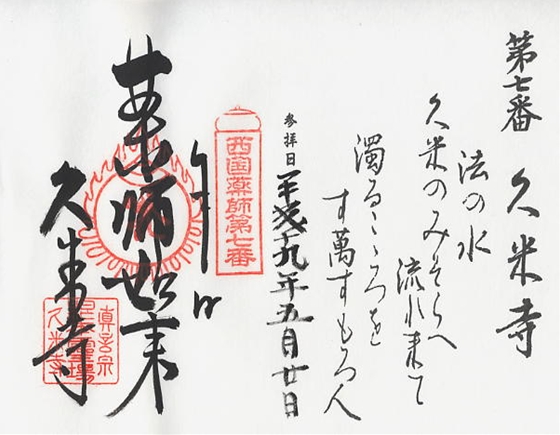 第七番 久米寺
法の水
久米のみそらへ
流れ来て
濁るこゝろを
す萬すもろ人
参拝日 平成十九年五月廿日
西国薬師第七番
薬師如来
久米寺
真言宗
久米寺